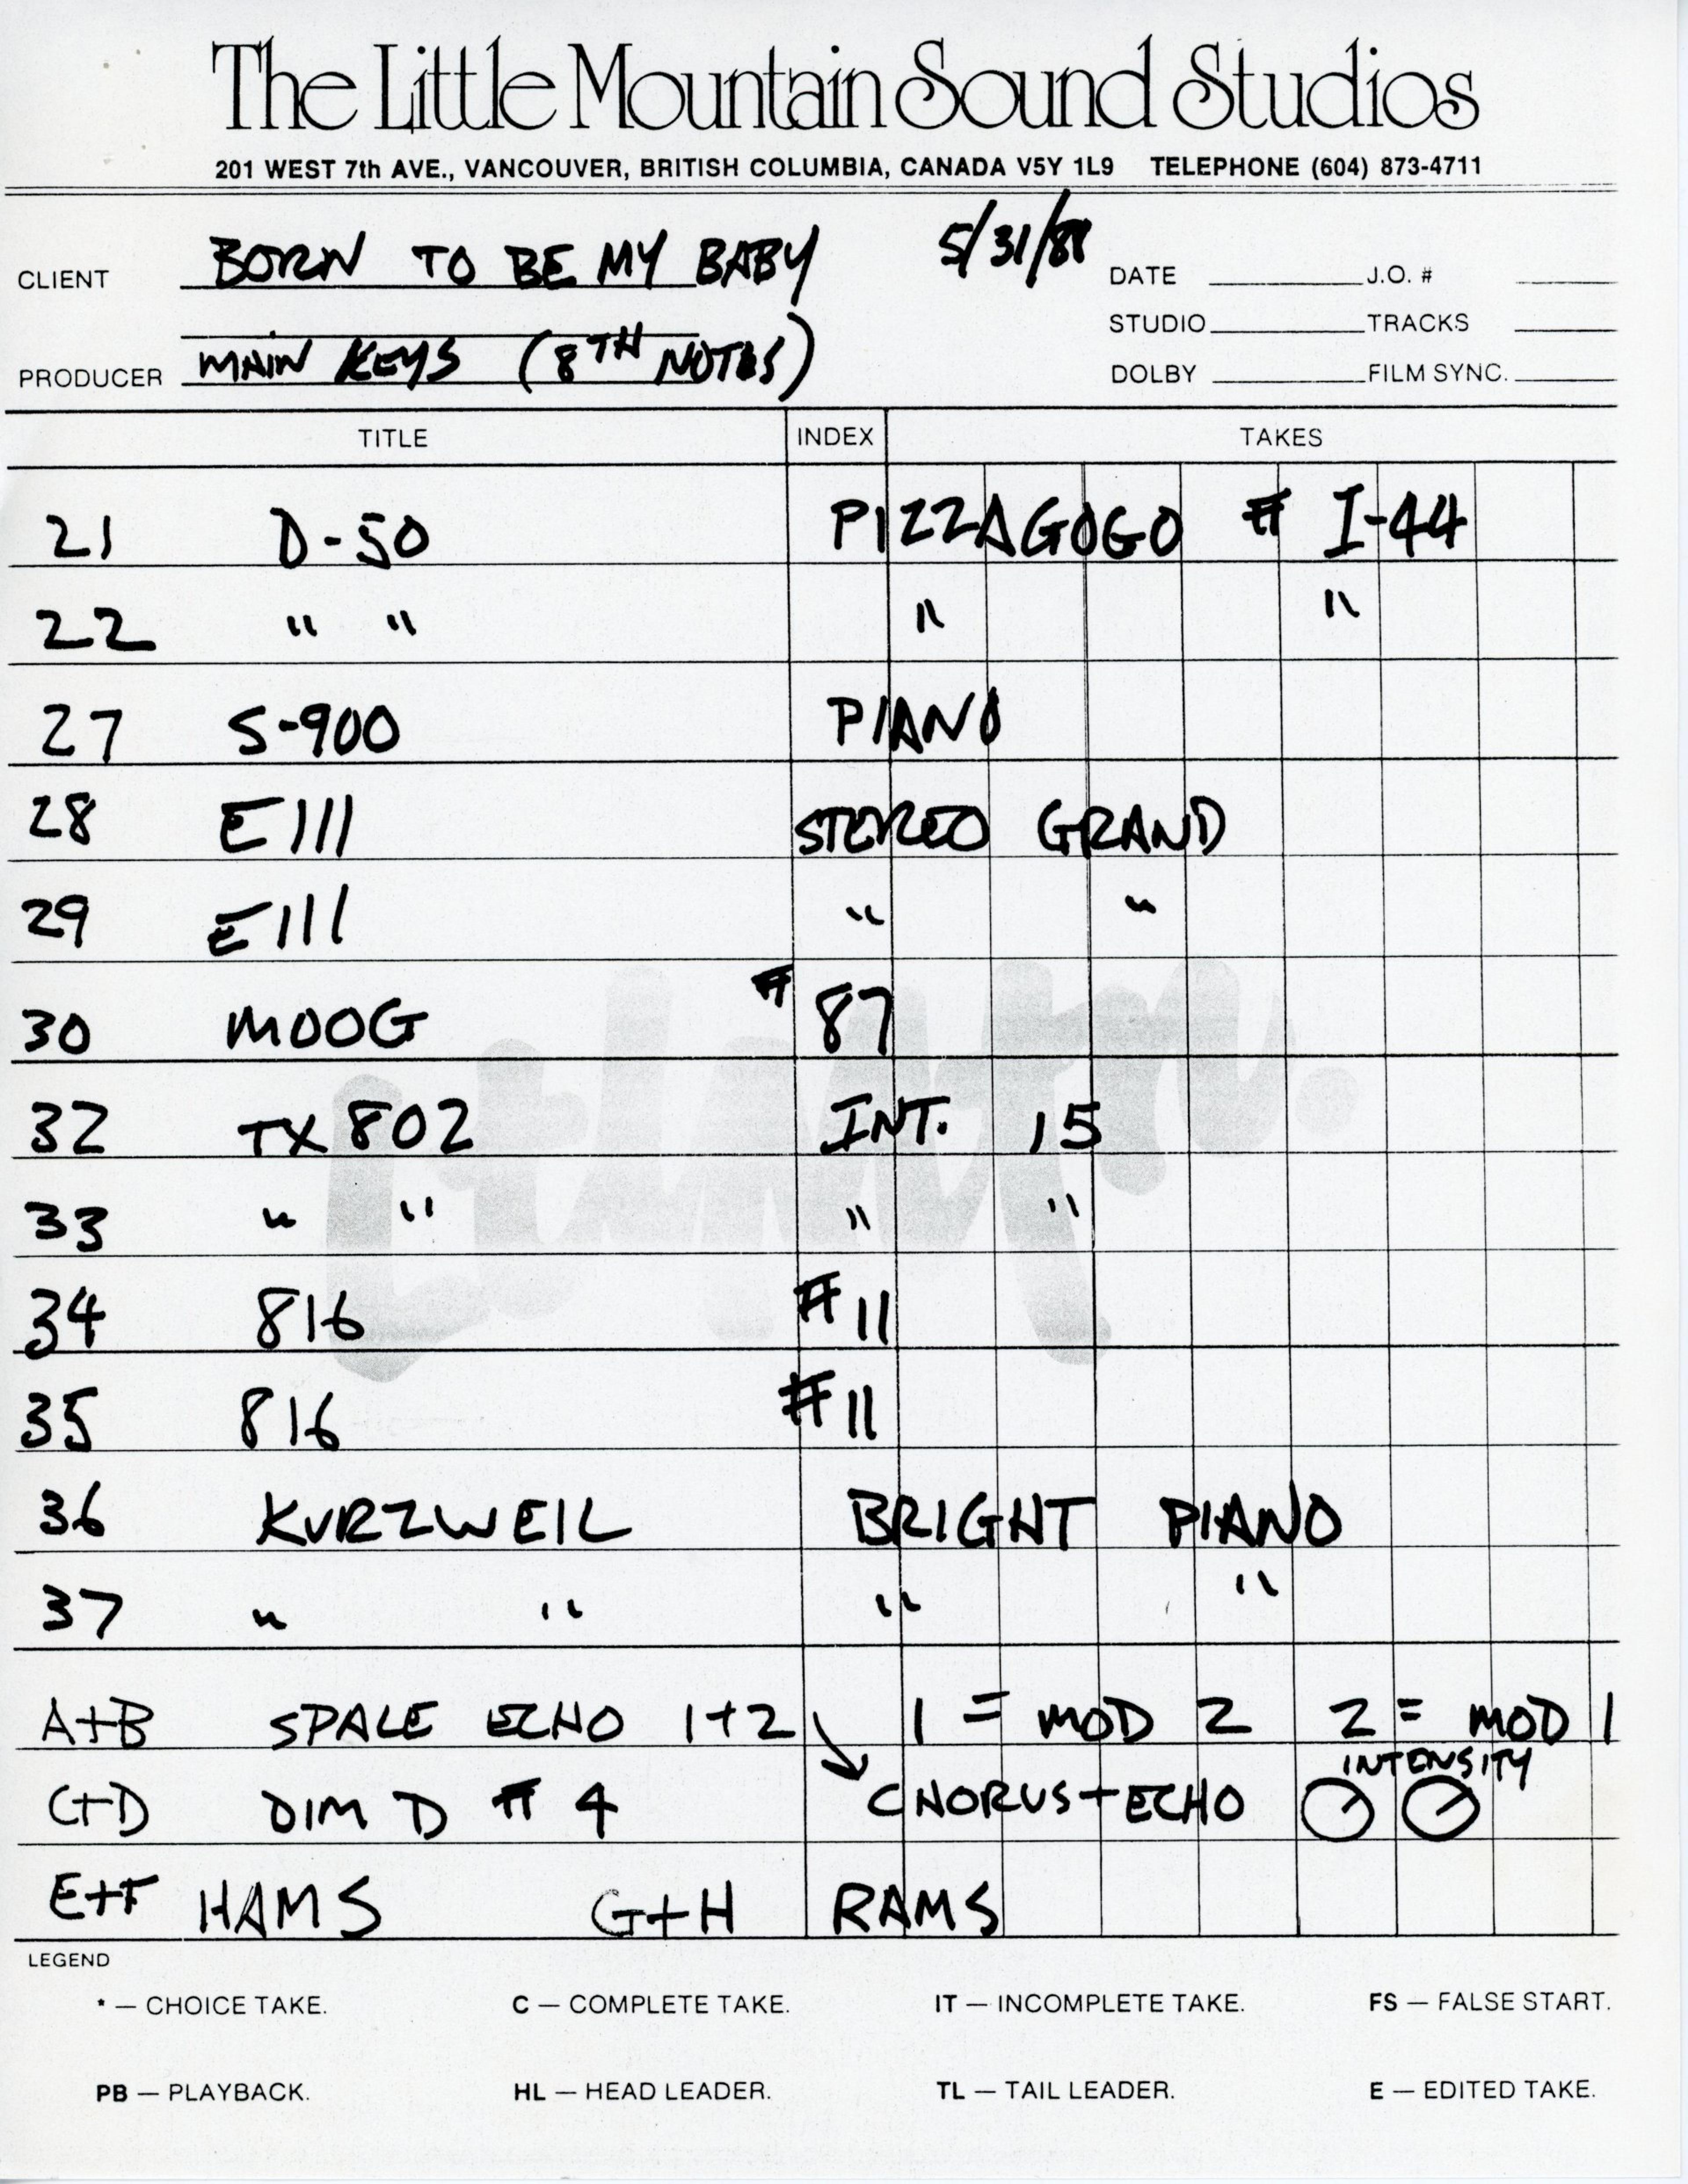 The Little Mountain Sound Studios
201 WEST 7th AVE., VANCOUVER, BRITISH COLUMBIA, CANADA V5Y 1L9 TELEPHONE (604) 873-4711
CLIENT BORN TO BE MY BABY 5/31/88 DATE J.O. #
STUDIO TRACKS
PRODUCER MAIN KEYS (8TH NOTES) DOLBY FILM SYNC.
TITLE INDEX TAKES
21 D-50 PIZZAGOGO # I-44
22 " " " "
27 S-900 PIANO
28 EIII STEREO GRAND
29 EIII " "
30 MOOG # 87
32 TX802 INT. 15
33 " " " "
34 816 #11
35 816 #11
36 KURZWEIL BRIGHT PIANO
37 " " " "
A+B SPALE ECHO 1+2 1 = MOD 2 2 = MOD 1
INTENSITY
C+D DIM D # 4 CHORUS+ECHO
E+F HAMS G+H RAMS
LEGEND
* — CHOICE TAKE. C — COMPLETE TAKE. IT — INCOMPLETE TAKE. FS — FALSE START.
PB — PLAYBACK. HL — HEAD LEADER. TL — TAIL LEADER. E — EDITED TAKE.